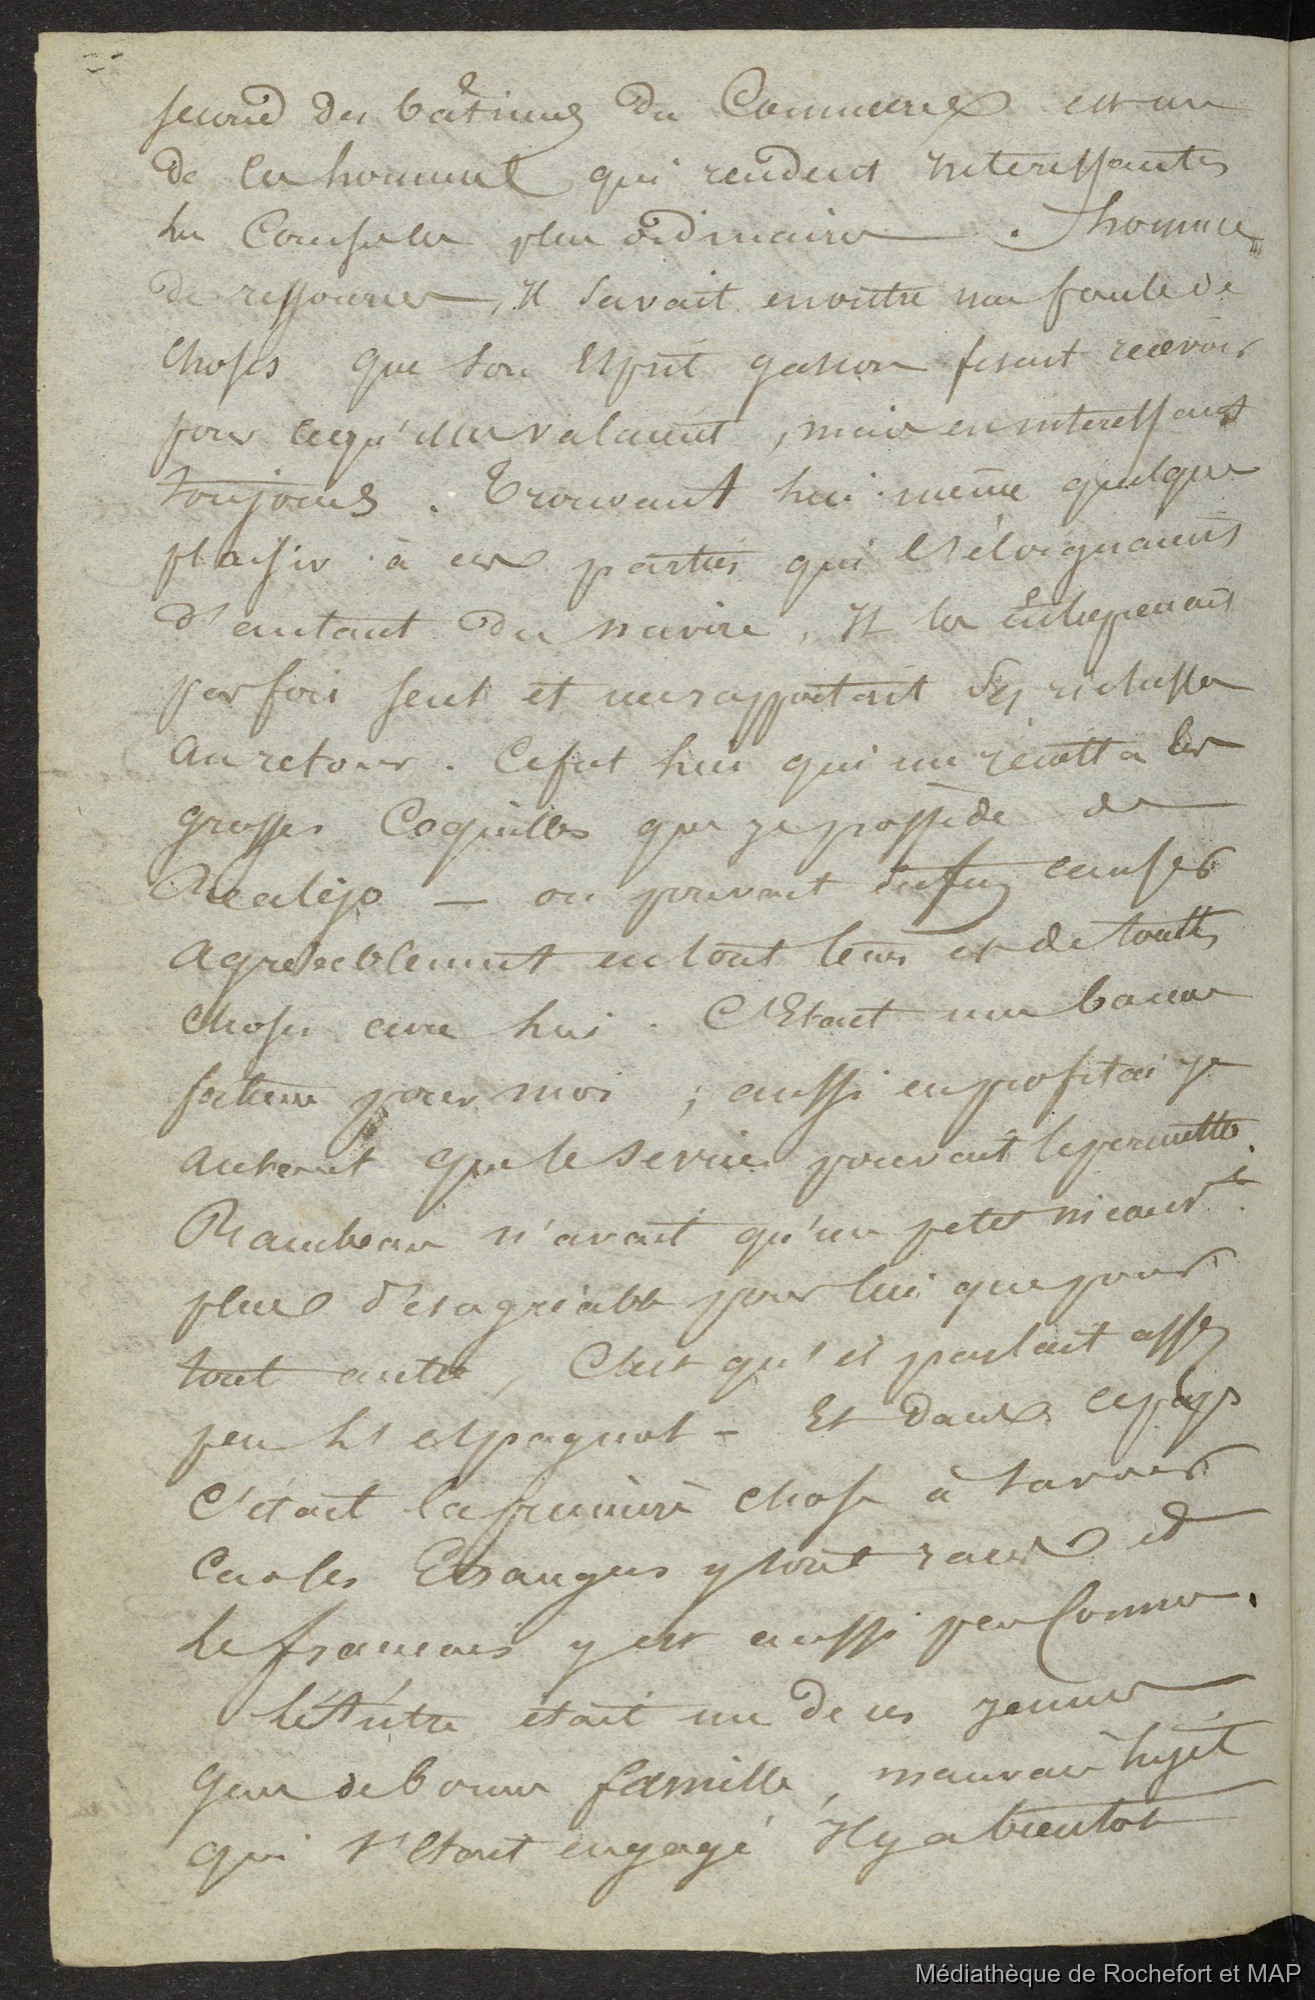 second des bâtimens du Commerce est un
de ces hommes qui rendent interessantes
les Causeries plus ordinaires. homme
de ressources, Il savait en outre une foule de
choses que son Esprit gascon fesait recevoir
pour ce qu'elles valaient, mais en interessant
toujours. Trouvant lui même quelque
plaisir à ces parties qui l'éloignaient
d'autant du navire, Il les entreprenait
parfois seul et me rapportait ses richesses
au retour. Ce fut lui qui me remit les
grosses Coquilles que je possède de
Realejo — on pouvait enfin causer
agréablement en tout tems et de toutes
choses avec lui. C'Etait une bonne
fortune pour moi ; aussi en profitai je
autant que le service pouvait le permettre.
Raimbeau n'avait qu'un petit
plus désagréable pour lui que pour
tout autre, C'est qu'il parlait assez
peu l'espagnol - Et dans ce pays
C'était la première chose à savoir
Car les Etrangers y sont rares et
le français y est aussi peu Connu.
L'Autre était un de ces jeunes
gens de bonne famille, mauvais sujet
qui s'était engagé Il y a bientot
Médiathèque de Rochefort et MAP